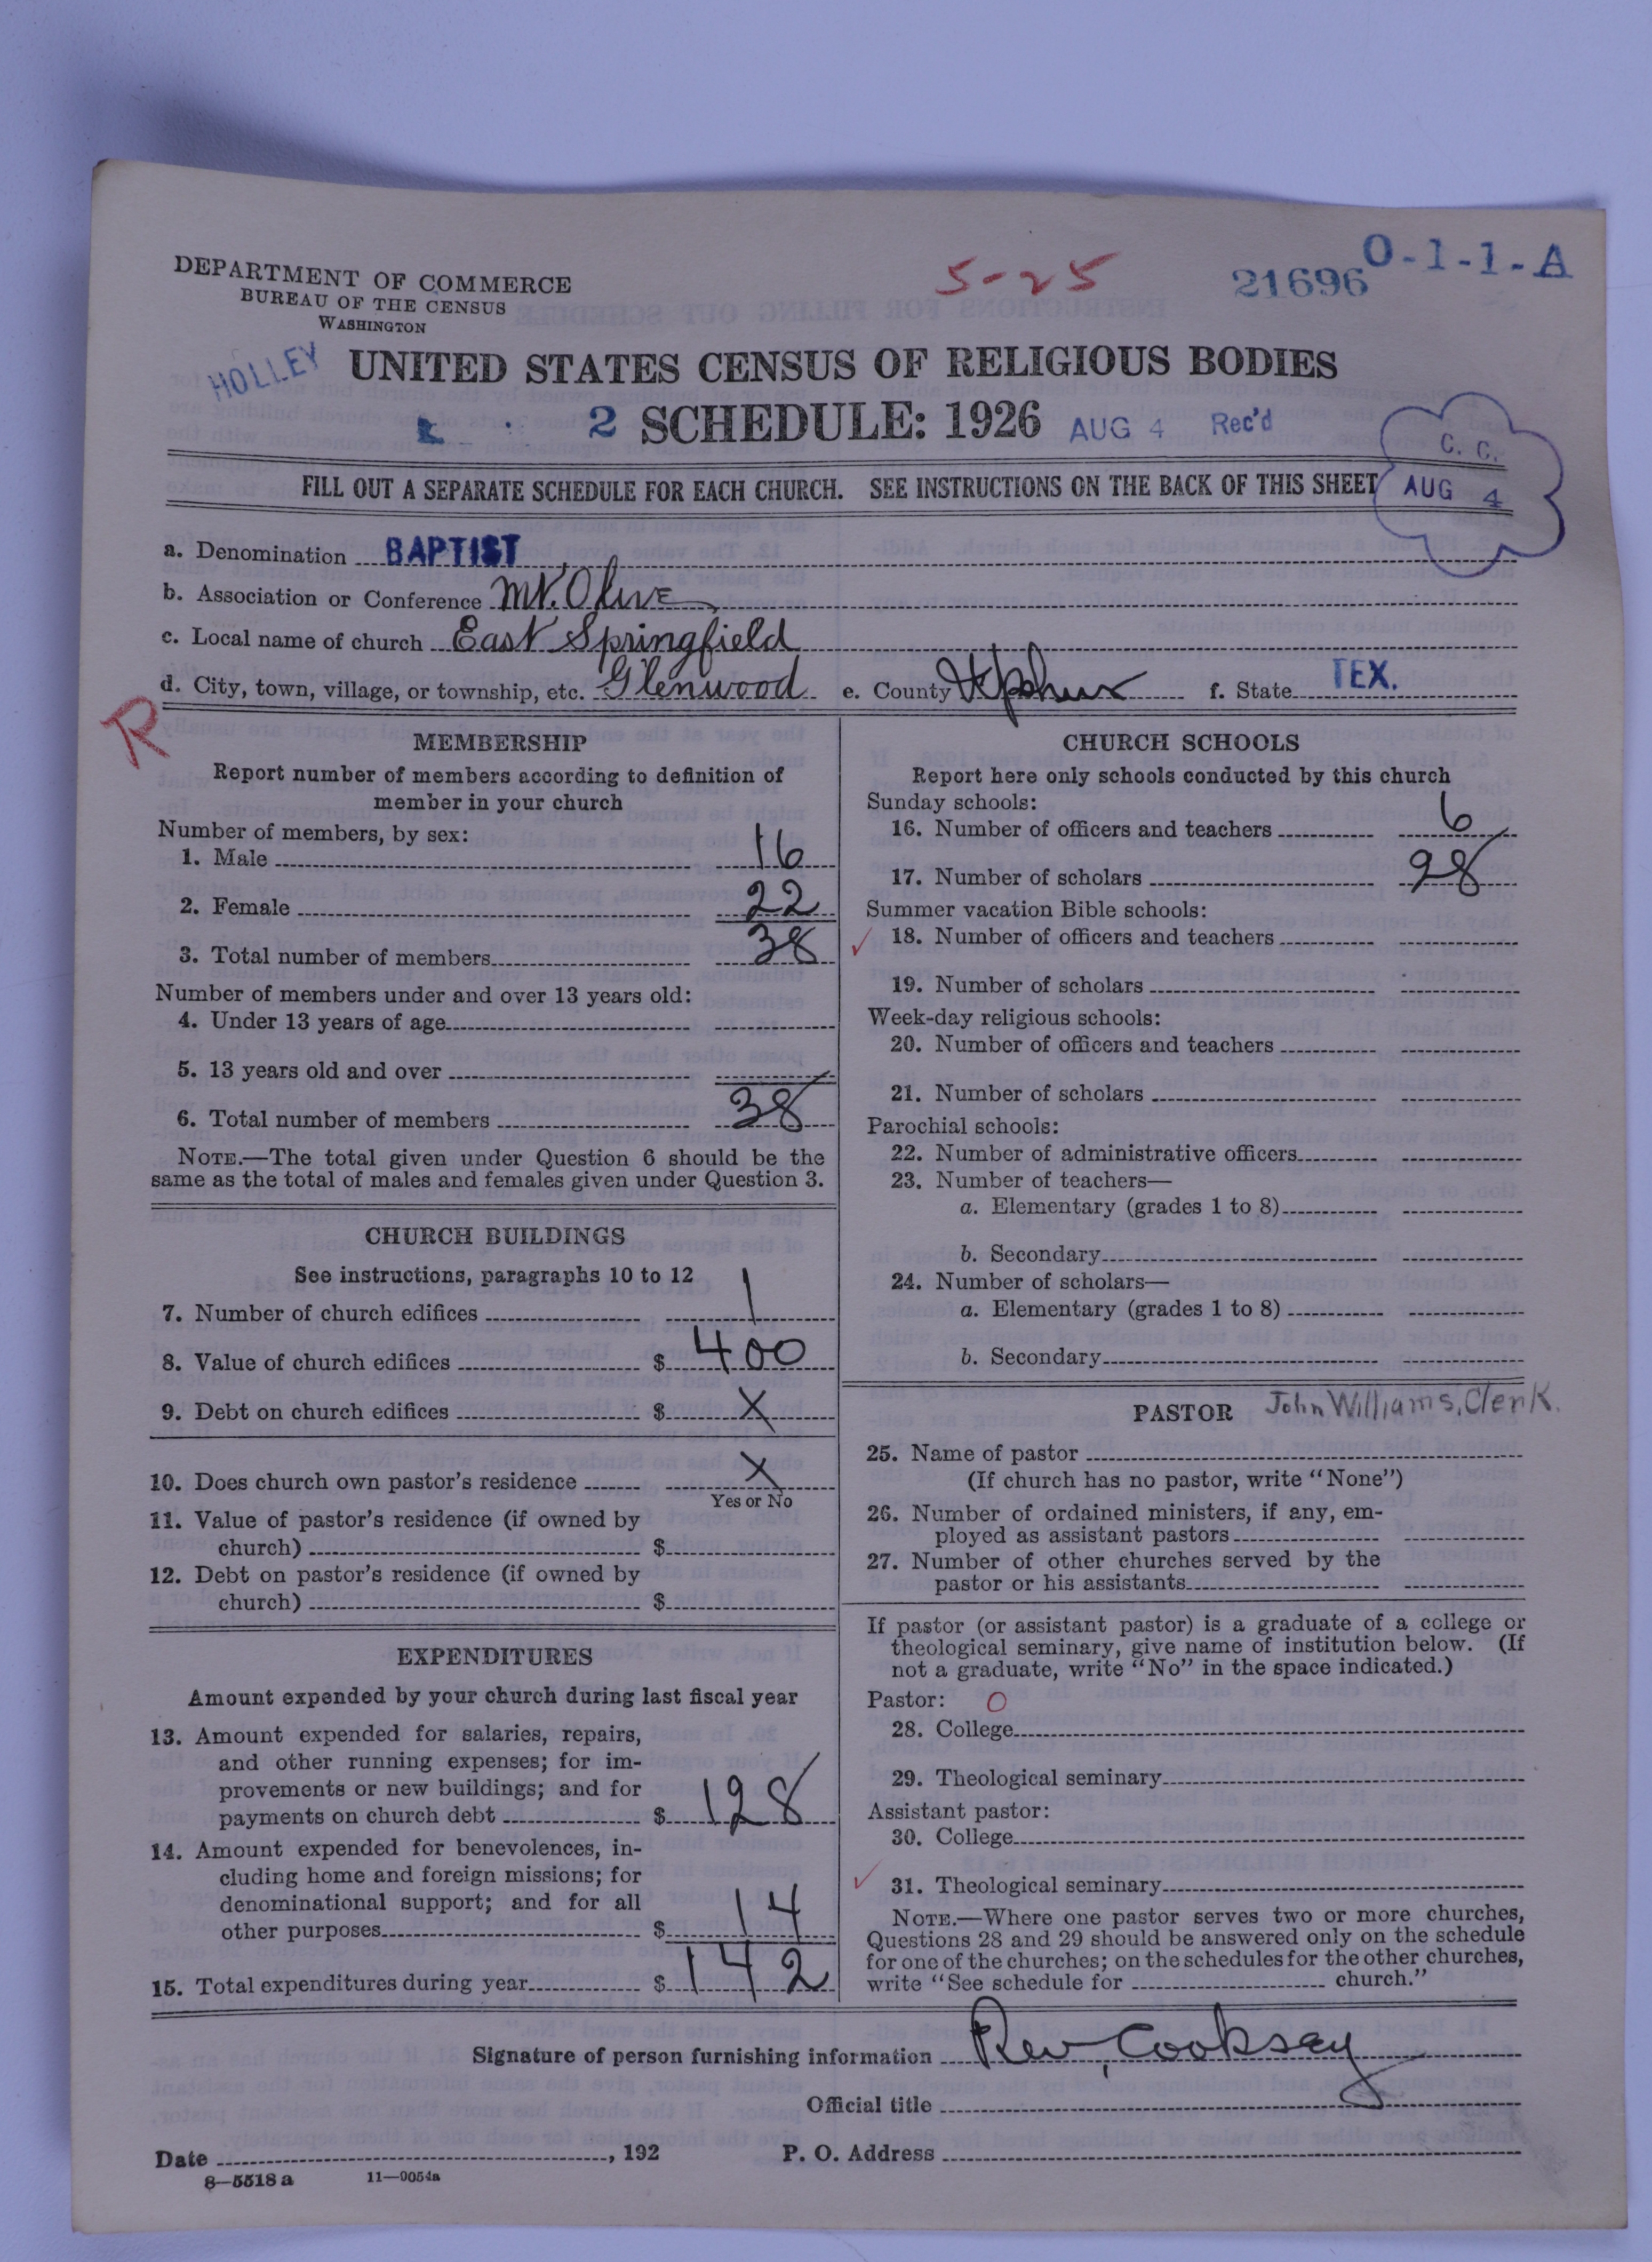 DEPARTMENT OF COMMERCE
BUREAU OF THE CENSUS
WASHINGTON
5-25
21696
O-1-1-A
HOLLEY
UNITED STATES CENSUS OF RELIGIOUS BODIES
2 SCHEDULE: 1926 AUG 4 Rec'd
C. C.
AUG 4
FILL OUT A SEPARATE SCHEDULE FOR EACH CHURCH. SEE INSTRUCTIONS ON THE BACK OF THIS SHEET
a. Denomination BAPTIST
b. Association or Conference Mt. Olive
c. Local name of church East Springfield
d. City, town, village, or township, etc. Glenwood e. County Upshur f. State TEX.
R
MEMBERSHIP
Report number of members according to definition of
member in your church
Number of members, by sex:
1. Male 16
2. Female 22
3. Total number of members 38
Number of members under and over 13 years old:
4. Under 13 years of age
5. 13 years old and over
6. Total number of members 38
NOTE.—The total given under Question 6 should be the
same as the total of males and females given under Question 3.
CHURCH BUILDINGS
See instructions, paragraphs 10 to 12
7. Number of church edifices 1
8. Value of church edifices $ 400
9. Debt on church edifices $ X
10. Does church own pastor's residence X
Yes or No
11. Value of pastor's residence (if owned by
church) $
12. Debt on pastor's residence (if owned by
church) $
EXPENDITURES
Amount expended by your church during last fiscal year
13. Amount expended for salaries, repairs,
and other running expenses; for im-
provements or new buildings; and for
payments on church debt $ 128
14. Amount expended for benevolences, in-
cluding home and foreign missions; for
denominational support; and for all
other purposes $ 14
15. Total expenditures during year $ 142
CHURCH SCHOOLS
Report here only schools conducted by this church
Sunday schools:
16. Number of officers and teachers 6
17. Number of scholars 98
Summer vacation Bible schools:
18. Number of officers and teachers
19. Number of scholars
Week-day religious schools:
20. Number of officers and teachers
21. Number of scholars
Parochial schools:
22. Number of administrative officers
23. Number of teachers—
a. Elementary (grades 1 to 8)
b. Secondary
24. Number of scholars—
a. Elementary (grades 1 to 8)
b. Secondary
PASTOR John Williams, Clerk.
25. Name of pastor
(If church has no pastor, write "None")
26. Number of ordained ministers, if any, em-
ployed as assistant pastors
27. Number of other churches served by the
pastor or his assistants
If pastor (or assistant pastor) is a graduate of a college or
theological seminary, give name of institution below. (If
not a graduate, write "No" in the space indicated.)
Pastor: O
28. College
29. Theological seminary
Assistant pastor:
30. College
31. Theological seminary
NOTE.—Where one pastor serves two or more churches,
Questions 28 and 29 should be answered only on the schedule
for one of the churches; on the schedules for the other churches,
write "See schedule for church."
Signature of person furnishing information Rev, Cooksey
Official title
Date , 192 P. O. Address
8—5518 a 11—9054a